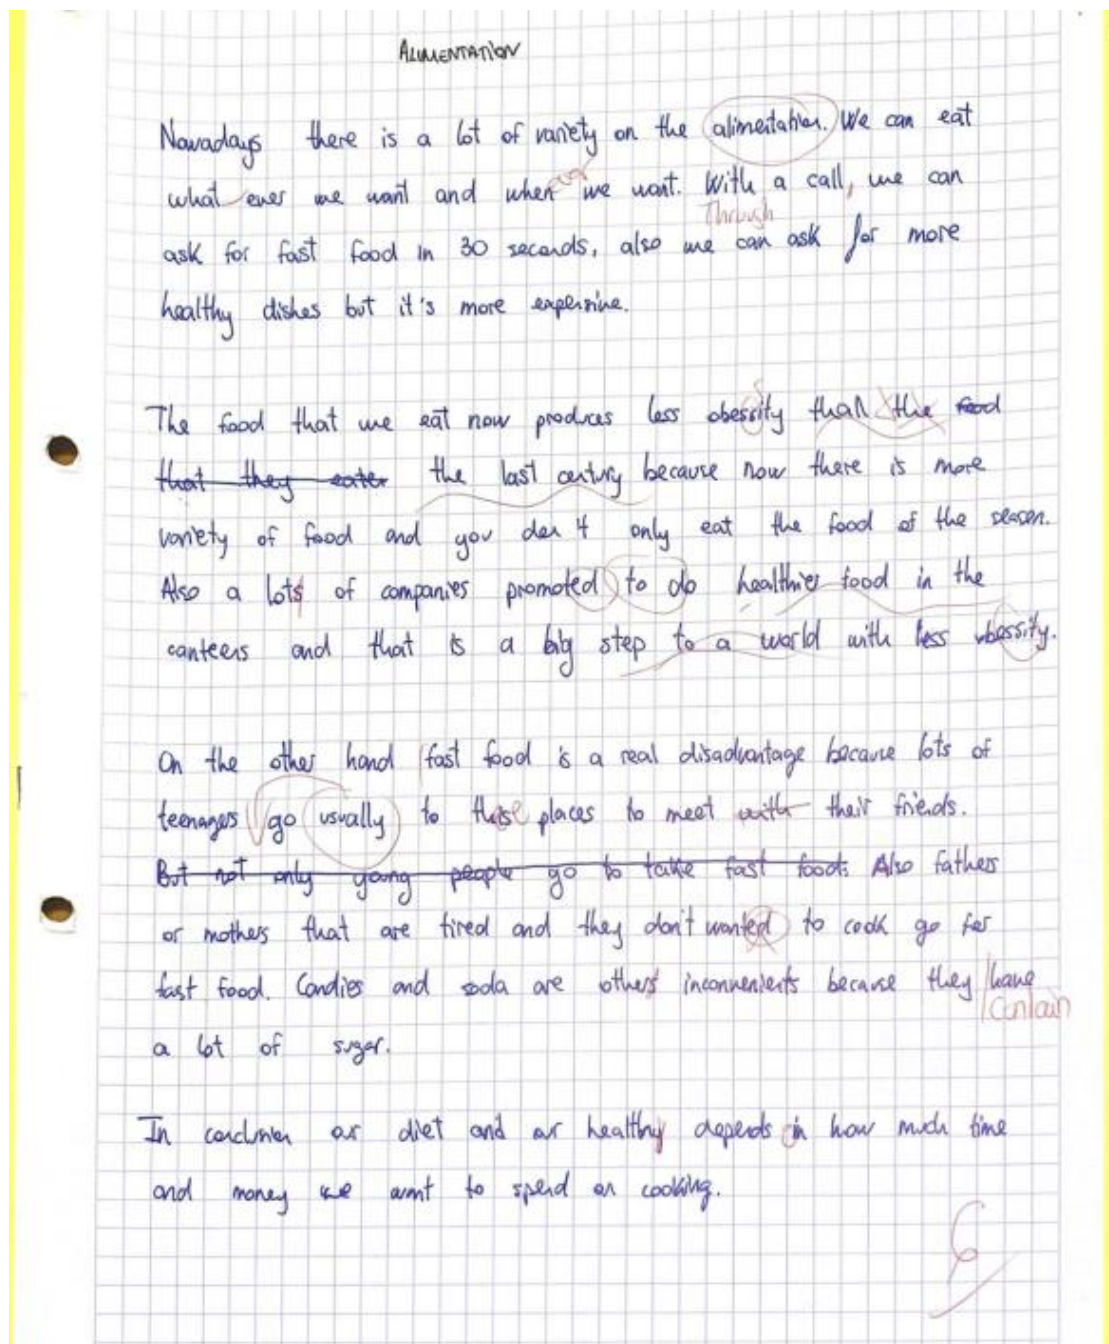 ALIMENTATION
Nowadays there is a lot of variety on the alimentation. We can eat
what ever we want and when ever we want. With a call, we can
Through
ask for fast food in 30 seconds, also we can ask for more
healthy dishes but it's more expensive.
The food that we eat now produces less obessity than the food
that they eater the last century because now there is more
variety of food and you don't only eat the food of the season.
Also a lots of companies promoted to do healthier food in the
canteens and that is a big step to a world with less obessity.
On the other hand fast food is a real disadvantage because lots of
teenagers go usually to these places to meet with their friends.
But not only young people go to take fast food. Also fathers
or mothers that are tired and they don't wanted to cook go for
fast food. Candies and soda are others inconvenients because they have
contain
a lot of sugar.
In conclusion our diet and our healthy depends in how much time
and money we want to spend on cooking.
6